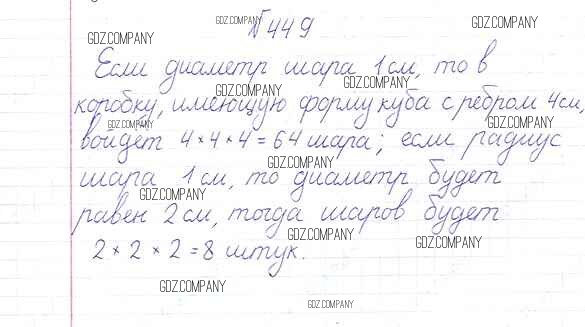 №449
Если диаметр шара 1 см, то в
коробку, имеющую форму куба с ребром 4 см,
войдёт 4 × 4 × 4 = 64 шара; если радиус
шара 1 см, то диаметр будет
равен 2 см, тогда шаров будет
2 × 2 × 2 = 8 штук.
GDZ.COMPANY
GDZ.COMPANY
GDZ.COMPANY
GDZ.COMPANY
GDZ.COMPANY
GDZ.COMPANY
GDZ.COMPANY
GDZ.COMPANY
GDZ.COMPANY
GDZ.COMPANY
GDZ.COMPANY
GDZ.COMPANY
GDZ.COMPANY